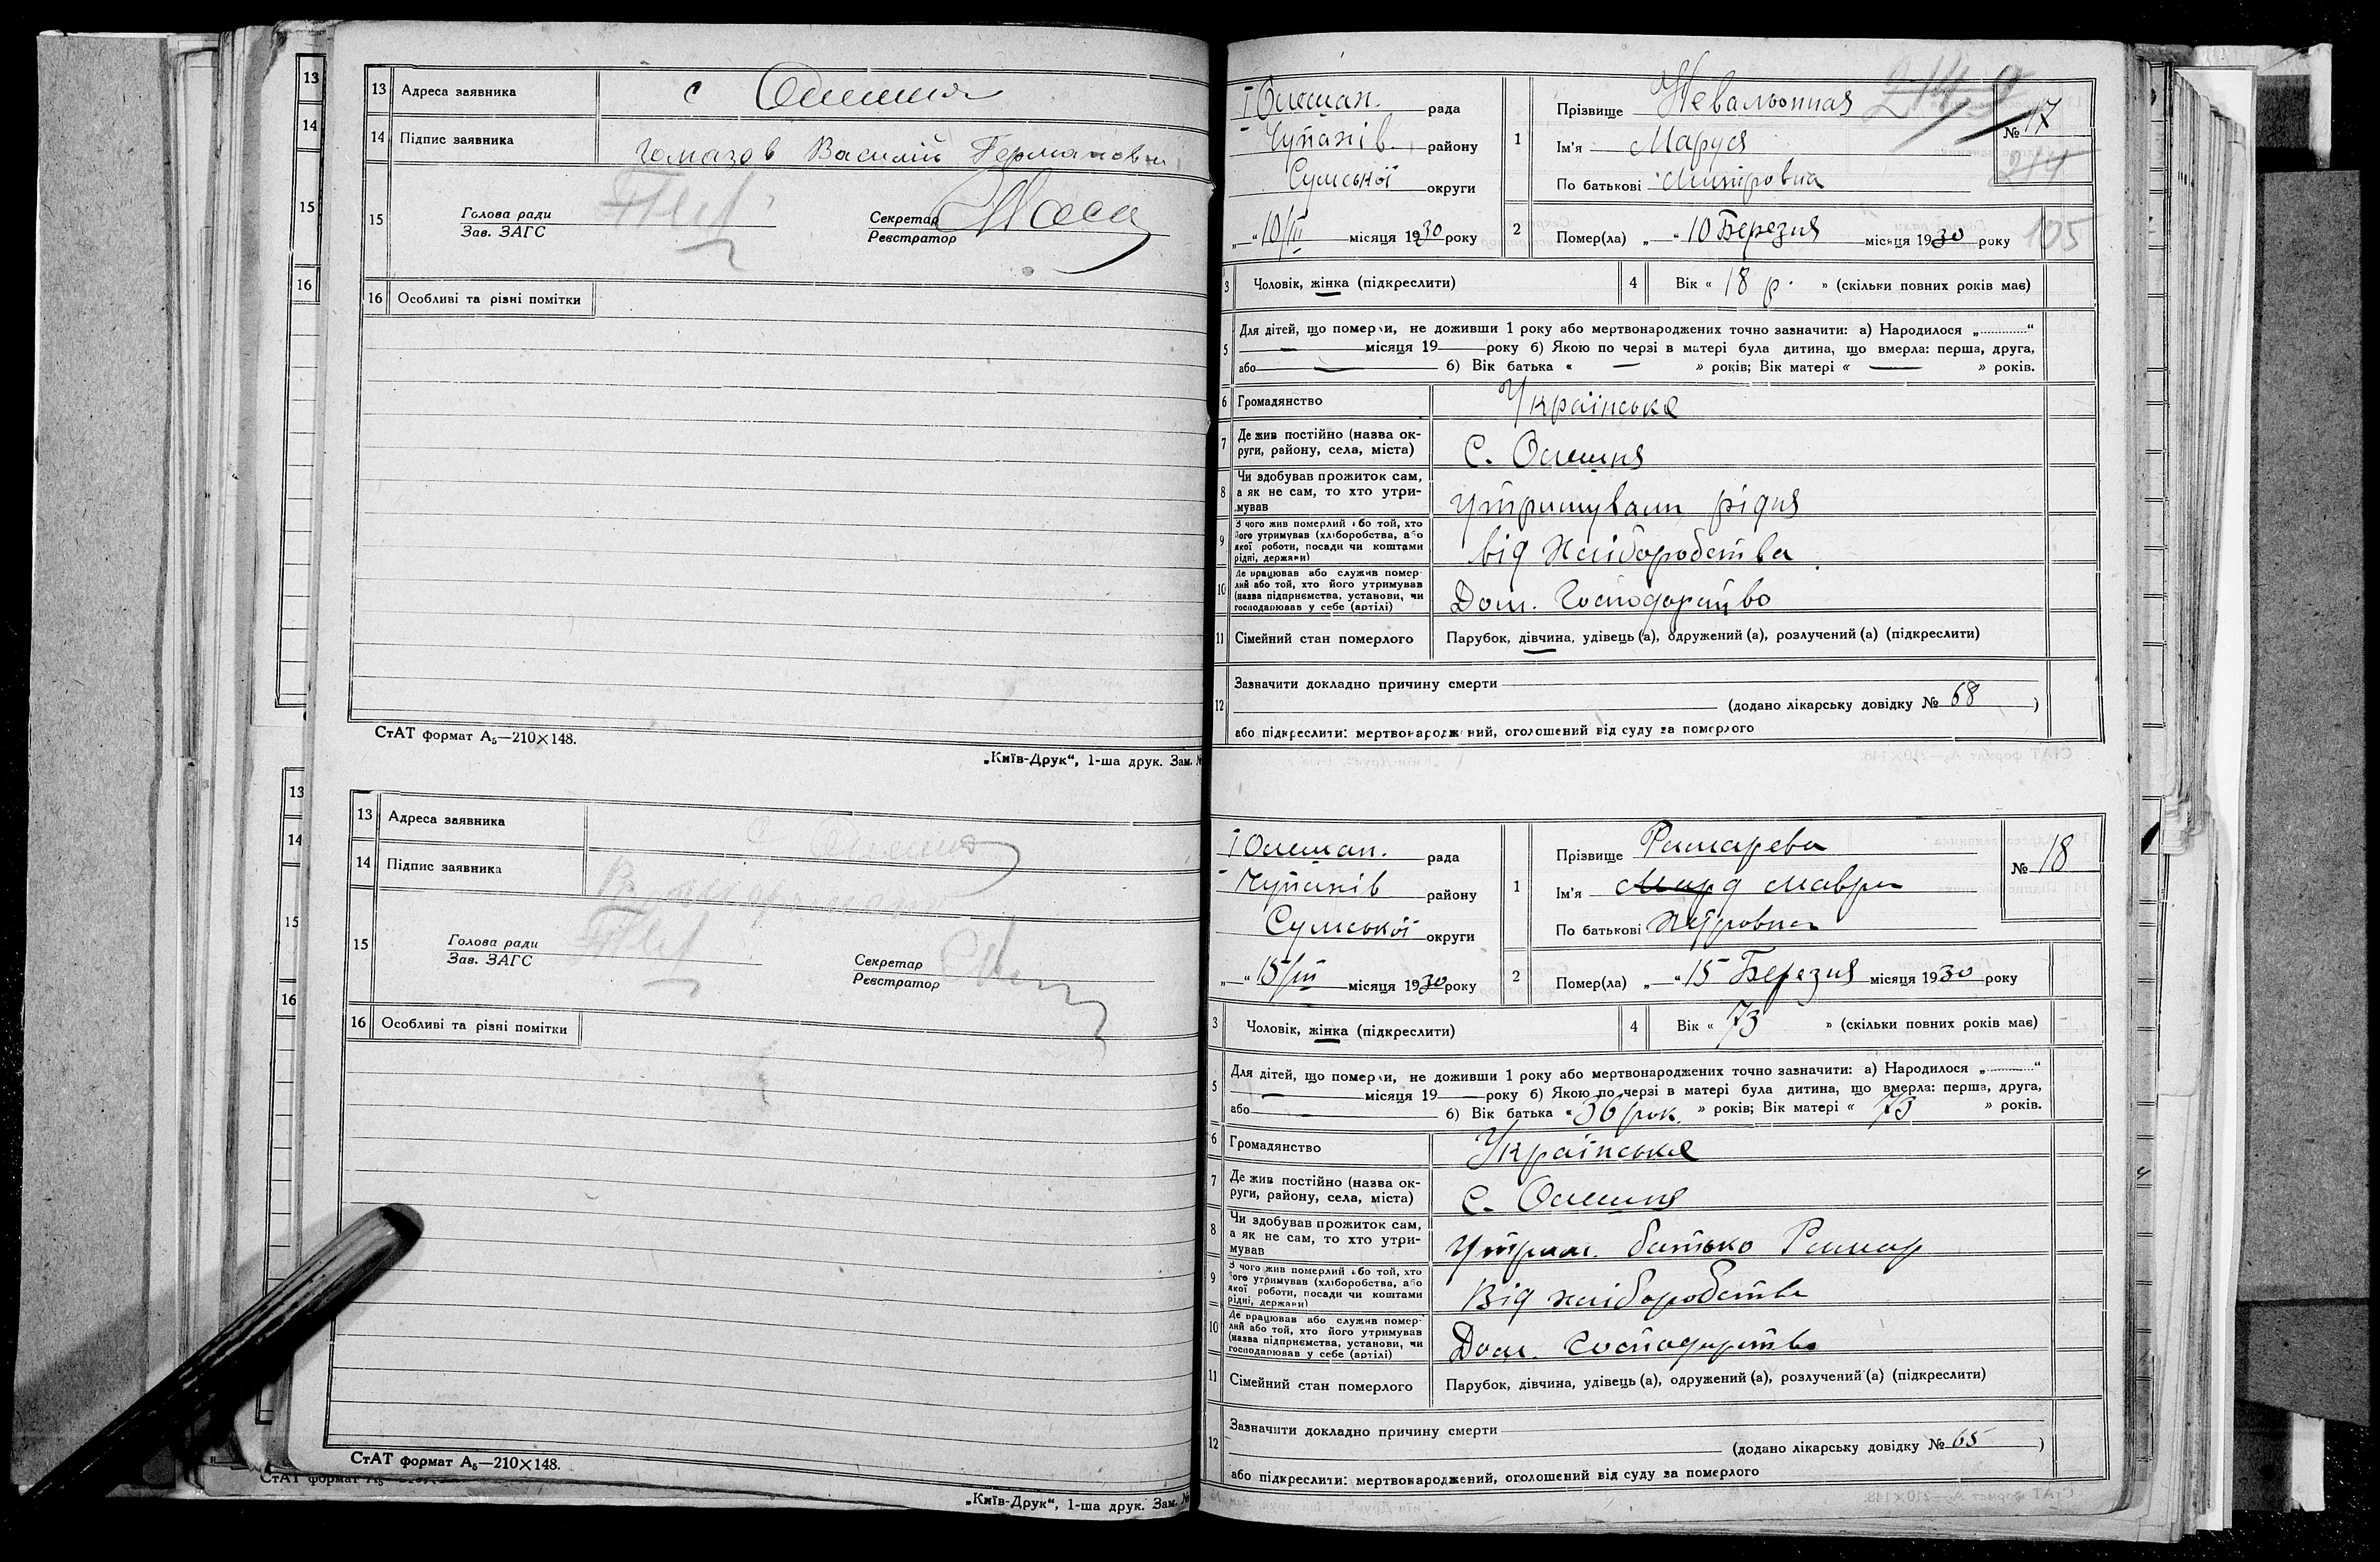 13 Адреса заявника с Олешня
14 Підпис заявника Василій
15 Голова ради Секретар
Зав. ЗАГС Реєстратор
16 Особливі та різні помітки
СтАТ формат А5—210×148.
„Київ-Друк“, 1-ша друк. Зам. №
13 Адреса заявника с Олешня
14 Підпис заявника
15 Голова ради Секретар
Зав. ЗАГС Реєстратор
16 Особливі та різні помітки
СтАТ формат А5—210×148.
„Київ-Друк“, 1-ша друк. Зам. №
І Олешан. рада
Чупахів. району
Сумської округи
„—“ 10/III місяця 1930 року
1 Прізвище
Ім'я Маруся
По батькові Дмитровна
№ 17
214
2 Помер(ла) „—“ 10 Березня місяця 1930 року
105
3 Чоловік, жінка (підкреслити) 4 Вік « 18 р. » (скільки повних років має)
5 Для дітей, що померли, не доживши 1 року або мертвонароджених точно зазначити: а) Народилося „............“
— місяця 19— року б) Якою по черзі в матері була дитина, що вмерла: перша, друга,
або — б) Вік батька « — » років; Вік матері « — » років.
6 Громадянство Українське
7 Де жив постійно (назва ок-
руги, району, села, міста) С. Олешня
8 Чи здобував прожиток сам,
а як не сам, то хто утри-
мував Утримували рідня
9 З чого жив померлий або той, хто
його утримував (хліборобства, або
якої роботи, посади чи коштами
рідні, держави) від Хліборобства
10 Де працював або служив помер-
лий або той, хто його утримував
(назва підприємства, установи, чи
господарював у себе (артілі) Дом. Господарство
11 Сімейний стан померлого Парубок, дівчина, удівець (а), одружений (а), розлучений (а) (підкреслити)
12 Зазначити докладно причину смерти
(додано лікарську довідку № 68)
або підкреслити: мертвонароджений, оголошений від суду за померлого
І Олешан. рада
Чупахів району
Сумської округи
„—“ 15/III місяця 1930 року
1 Прізвище Римарева
Ім'я Мавра
По батькові Петровна
№ 18
2 Помер(ла) „—“ 15 Березня місяця 1930 року
3 Чоловік, жінка (підкреслити) 4 Вік « 73 » (скільки повних років має)
5 Для дітей, що померли, не доживши 1 року або мертвонароджених точно зазначити: а) Народилося „............“
— місяця 19— року б) Якою по черзі в матері була дитина, що вмерла: перша, друга,
або — б) Вік батька « 36 рок. » років; Вік матері « 73 » років.
6 Громадянство Українське
7 Де жив постійно (назва ок-
руги, району, села, міста) С. Олешня
8 Чи здобував прожиток сам,
а як не сам, то хто утри-
мував Утрим. батько Римар
9 З чого жив померлий або той, хто
його утримував (хліборобства, або
якої роботи, посади чи коштами
рідні, держави) Від хліборобства
10 Де працював або служив помер-
лий або той, хто його утримував
(назва підприємства, установи, чи
господарював у себе (артілі) Дом. господарство
11 Сімейний стан померлого Парубок, дівчина, удівець (а), одружений (а), розлучений (а) (підкреслити)
12 Зазначити докладно причину смерти
(додано лікарську довідку № 65)
або підкреслити: мертвонароджений, оголошений від суду за померлого